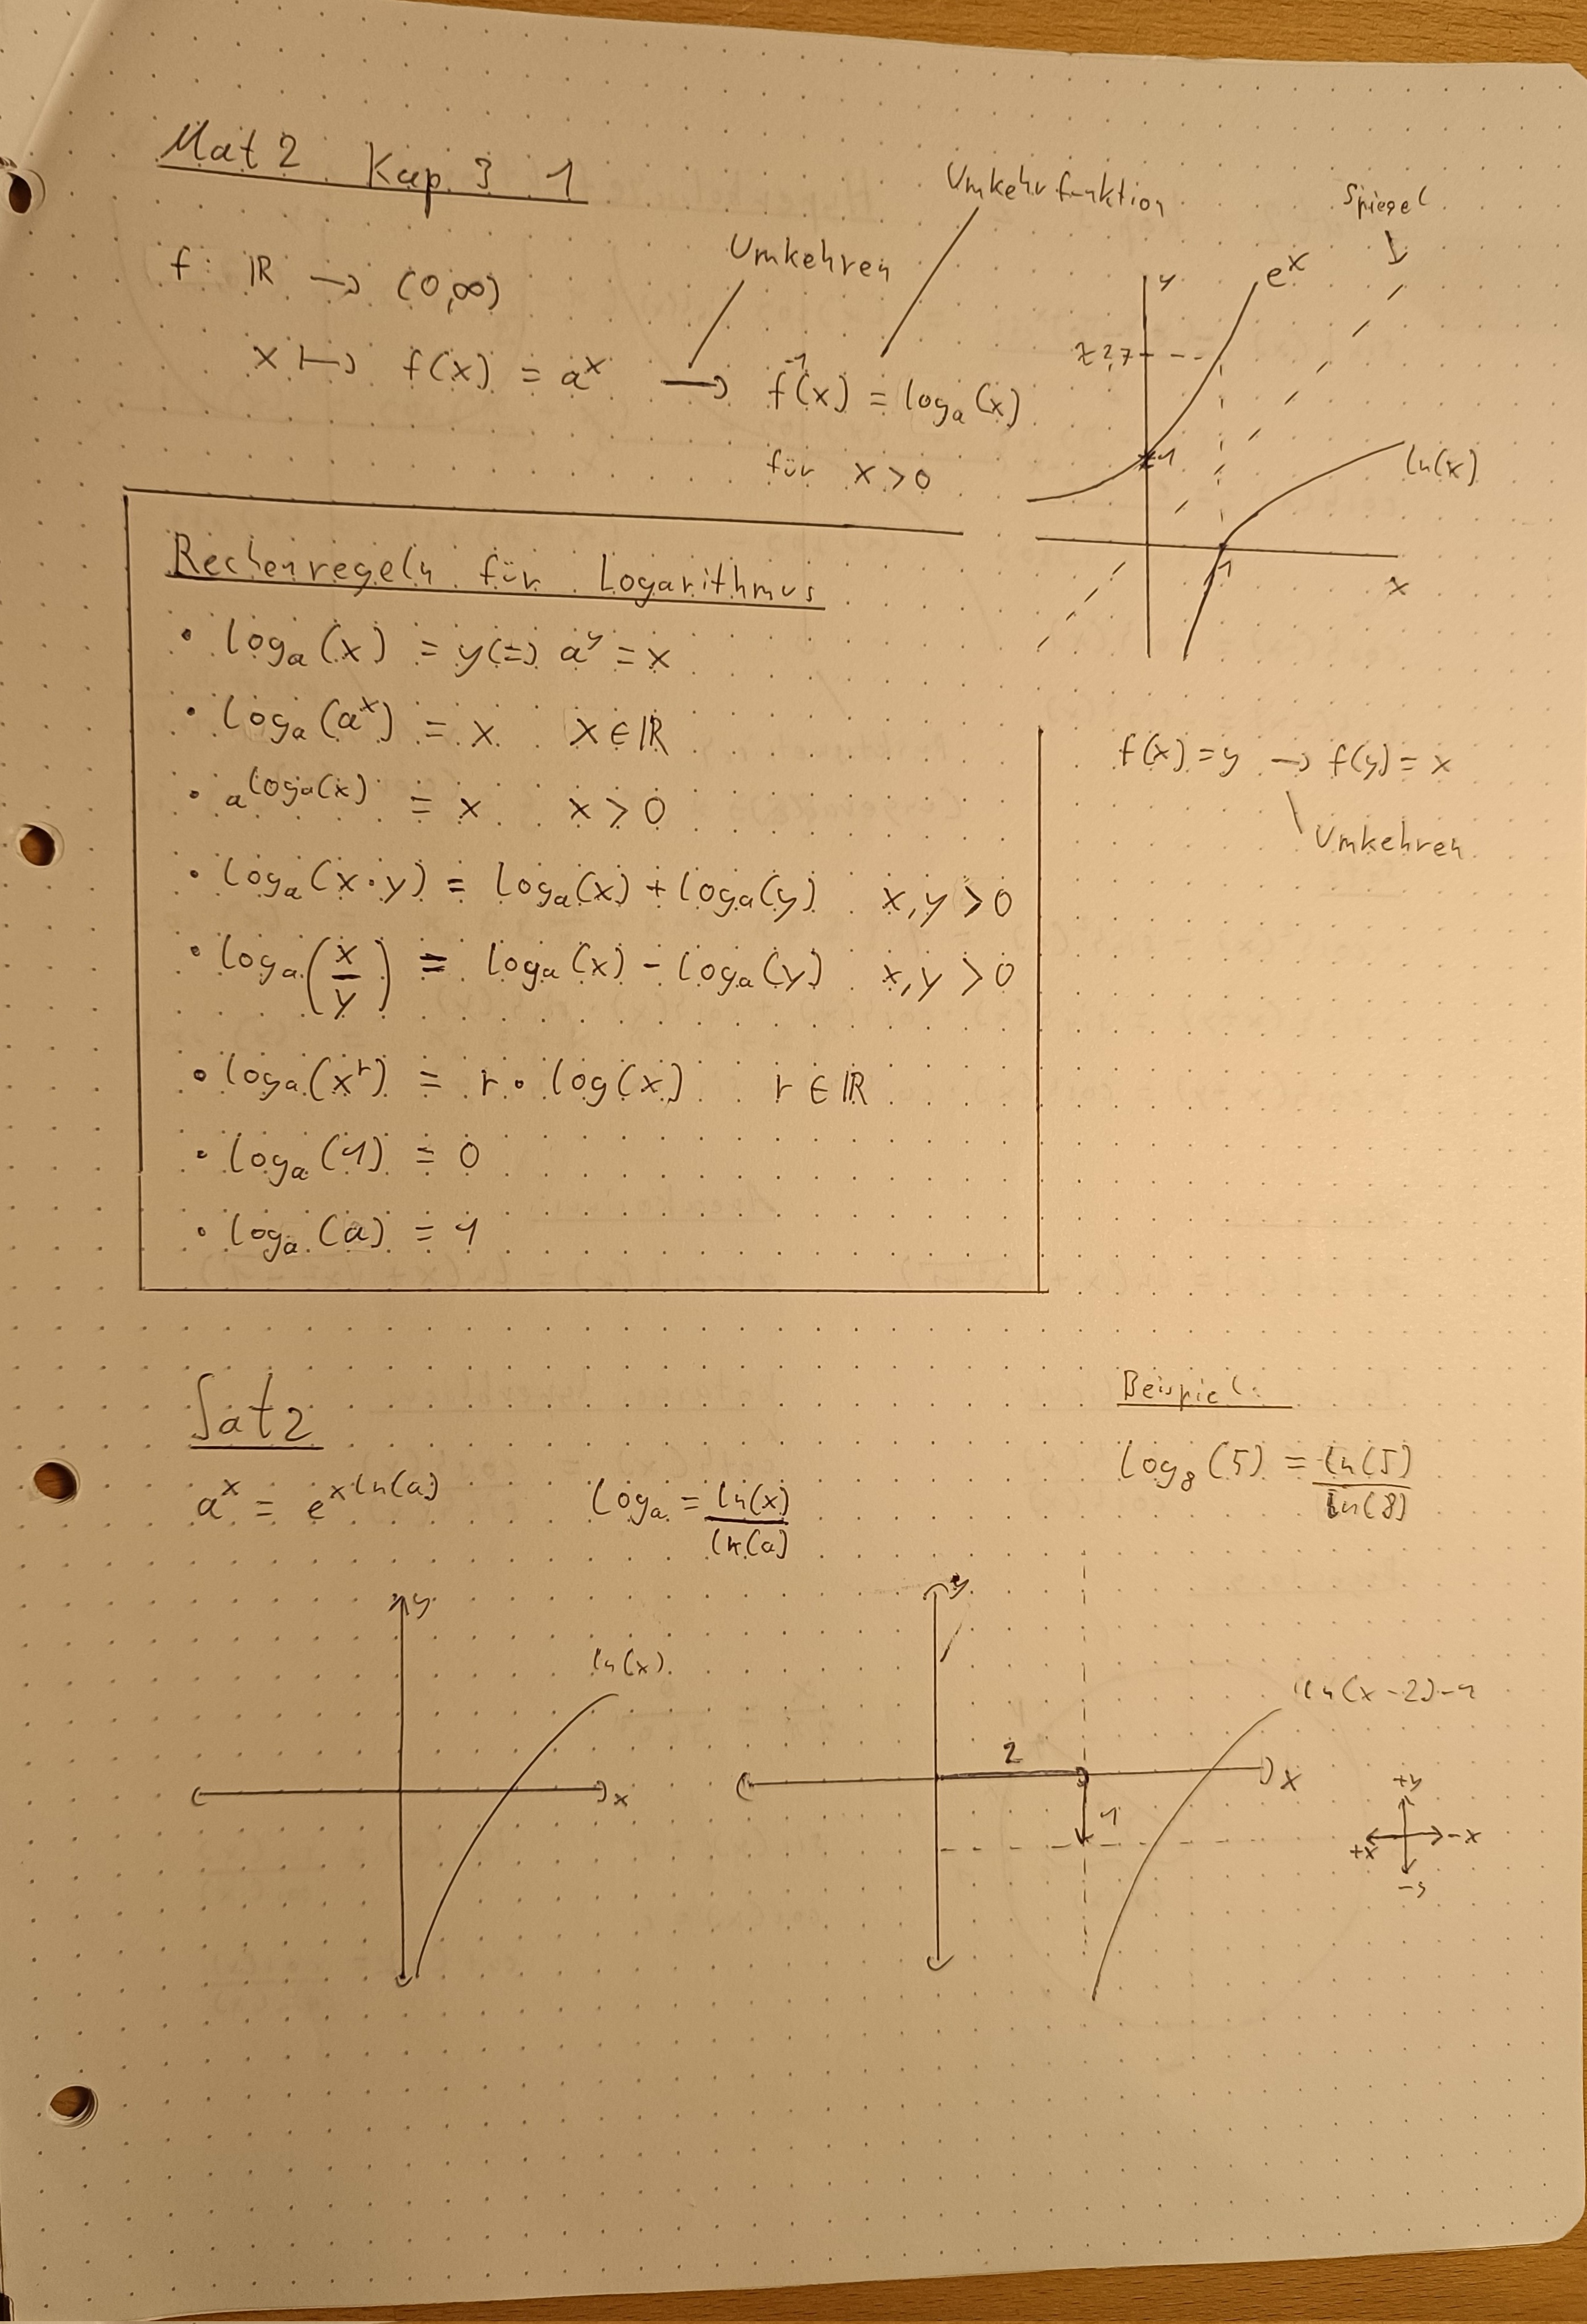 Mat 2 Kap. 3 1
Umkehrfunktion
Spiegel
f: ℝ → (0,∞)
Umkehren
x ↦ f(x) = aˣ → f⁻¹(x) = logₐ(x)
für x > 0
y
eˣ
≈ 2,7
1
ln(x)
1
x
Rechenregeln für Logarithmus
• logₐ(x) = y (=) aʸ = x
• logₐ(aˣ) = x x ∈ ℝ
• a^logₐ(x) = x x > 0
• logₐ(x·y) = logₐ(x) + logₐ(y) x, y > 0
• logₐ(x/y) = logₐ(x) - logₐ(y) x, y > 0
• logₐ(xʳ) = r · log(x) r ∈ ℝ
• logₐ(1) = 0
• logₐ(a) = 1
f(x) = y → f(y) = x
Umkehren
Satz
aˣ = e^x ln(a) logₐ = ln(x)/ln(a)
Beispiel:
log₈(5) = ln(5)/ln(8)
y
ln(x)
x
y
ln(x-2)-1
2
x
1
+y
+x
-x
-y